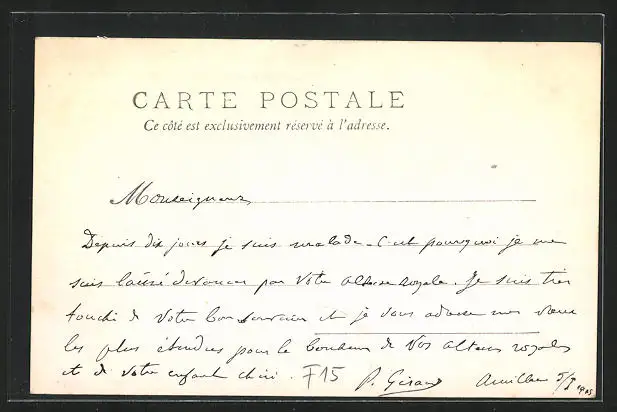 CARTE POSTALE
Ce côté est exclusivement réservé à l'adresse.
Monseigneur,
Depuis dix jours je suis malade - C'est pourquoi je me
suis laissé devancer par Votre Altesse royale. Je suis très
touché de Votre bon souvenir et je vous adresse mes vœux
les plus étendus pour le bonheur de Vos Altesses royales
et de votre enfant chéri. F15 P. Giraud 5/I 1905